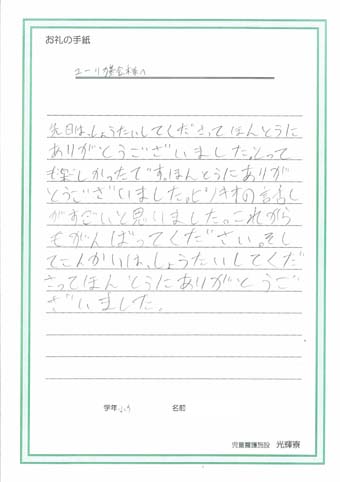 お礼の手紙
先日は、しょうたいしてくださってほんとうに
ありがとうございました。とって
も楽しかったです。ほんとうにありが
とうございました。ピノキオの
がすごいと思いました。これから
もがんばってください。そし
てこんかいは、しょうたいしてくだ
さってほんとうにありがとうご
ざいました。
学年 名前
児童養護施設 光輝寮